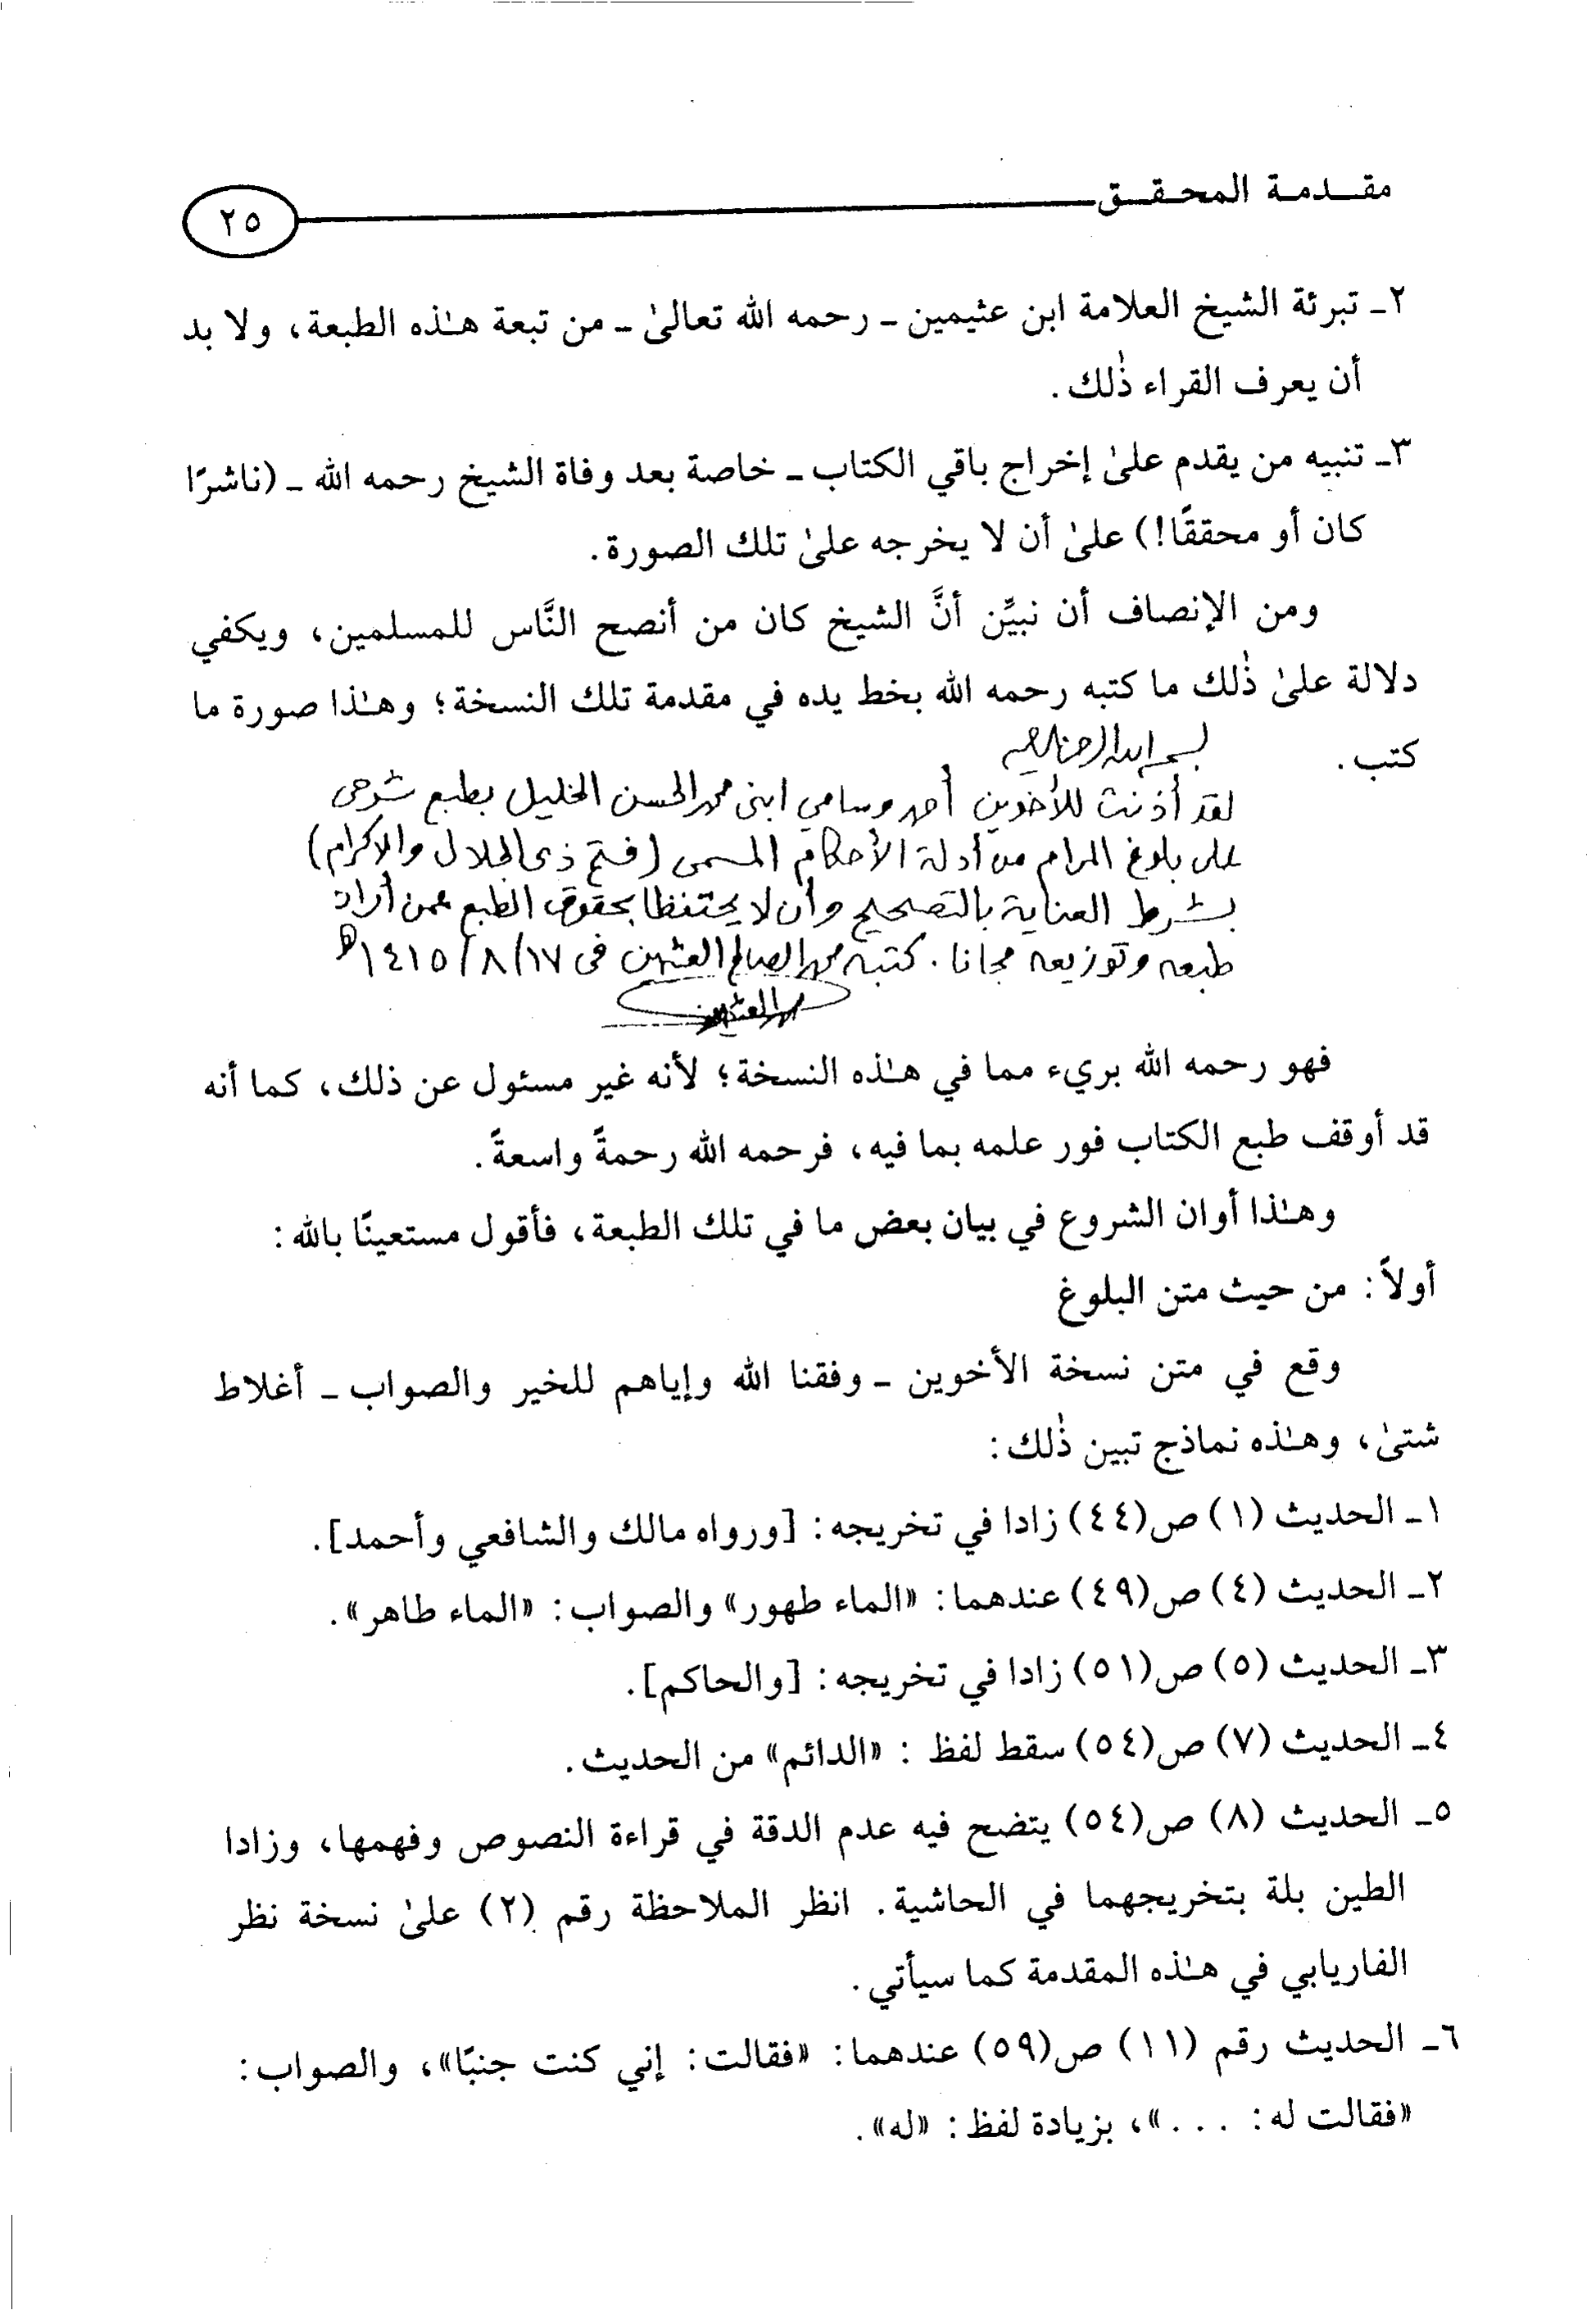 مقدمة المحقق
٢٥
٢ـ تبرئة الشيخ العلامة ابن عثيمين ـ رحمه الله تعالىٰ ـ من تبعة هـٰذه الطبعة، ولا بد
أن يعرف القراء ذٰلك.
٣ـ تنبيه من يقدم علىٰ إخراج باقي الكتاب ـ خاصة بعد وفاة الشيخ رحمه الله ـ (ناشرًا
كان أو محققًا!) علىٰ أن لا يخرجه علىٰ تلك الصورة.
ومن الإنصاف أن نبيِّن أنَّ الشيخ كان من أنصح النَّاس للمسلمين، ويكفي
دلالة علىٰ ذٰلك ما كتبه رحمه الله بخط يده في مقدمة تلك النسخة؛ وهـٰذا صورة ما
كتب.
بسم الله الرحمن الرحيم
لقد أذنت للأخوين أحمد وسامي ابني محمد الحسن الخليل بطبع شرحي
على بلوغ المرام من أدلة الأحكام المسمى (فتح ذي الجلال والإكرام)
بشرط العناية بالتصحيح وأن لا يحتفظا بحقوق الطبع عمن أراد
طبعه وتوزيعه مجانا. كتبه محمد الصالح العثيمين في ١٤١٥/٨/١٧هـ
محمد العثيمين
فهو رحمه الله بريء مما في هـٰذه النسخة؛ لأنه غير مسئول عن ذلك، كما أنه
قد أوقف طبع الكتاب فور علمه بما فيه، فرحمه الله رحمةً واسعةً.
وهـٰذا أوان الشروع في بيان بعض ما في تلك الطبعة، فأقول مستعينًا بالله:
أولاً: من حيث متن البلوغ
وقع في متن نسخة الأخوين ـ وفقنا الله وإياهم للخير والصواب ـ أغلاط
شتىٰ، وهـٰذه نماذج تبين ذٰلك:
١ـ الحديث (١) ص(٤٤) زادا في تخريجه: [ورواه مالك والشافعي وأحمد].
٢ـ الحديث (٤) ص(٤٩) عندهما: «الماء طهور» والصواب: «الماء طاهر».
٣ـ الحديث (٥) ص(٥١) زادا في تخريجه: [والحاكم].
٤ـ الحديث (٧) ص(٥٤) سقط لفظ : «الدائم» من الحديث.
٥ـ الحديث (٨) ص(٥٤) يتضح فيه عدم الدقة في قراءة النصوص وفهمها، وزادا
الطين بلة بتخريجهما في الحاشية. انظر الملاحظة رقم (٢) علىٰ نسخة نظر
الفاريابي في هـٰذه المقدمة كما سيأتي.
٦ـ الحديث رقم (١١) ص(٥٩) عندهما: «فقالت: إني كنت جنبًا»، والصواب:
«فقالت له: . . .»، بزيادة لفظ: «له».